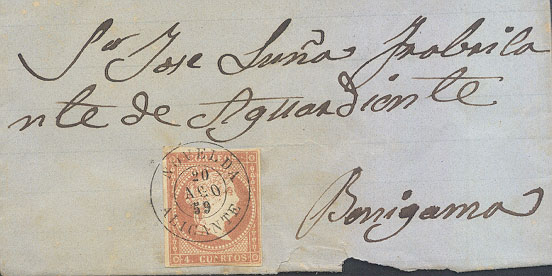 Sor Jose Luña Frabrica
nte de Aguardiente
Benigama
NOVELDA
20
AGO
59
ALICANTE
4. CUARTOS